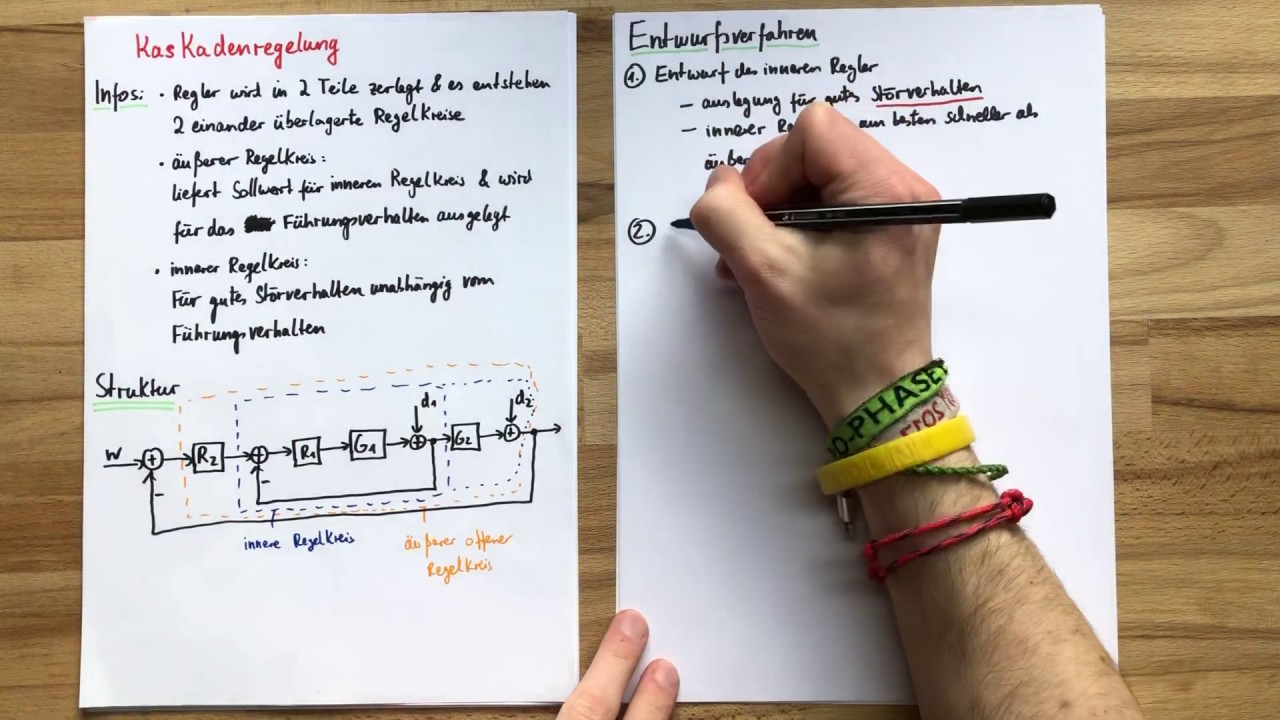 Kaskadenregelung
Infos: · Regler wird in 2 Teile zerlegt & es entstehen
2 einander überlagerte Regelkreise
· äußerer Regelkreis:
liefert Sollwert für inneren Regelkreis & wird
für das Führungsverhalten ausgelegt
· innerer Regelkreis:
Für gutes Störverhalten unabhängig vom
Führungsverhalten
Struktur
d1
d2
w
+
R2
+
R1
G1
+
G2
+
-
-
innere Regelkreis
äußerer offener
Regelkreis
Entwurfsverfahren
1. Entwurf des inneren Regler
- auslegung für gutes Störverhalten
- innerer am besten schneller als
2.
O-PHASE
EROS